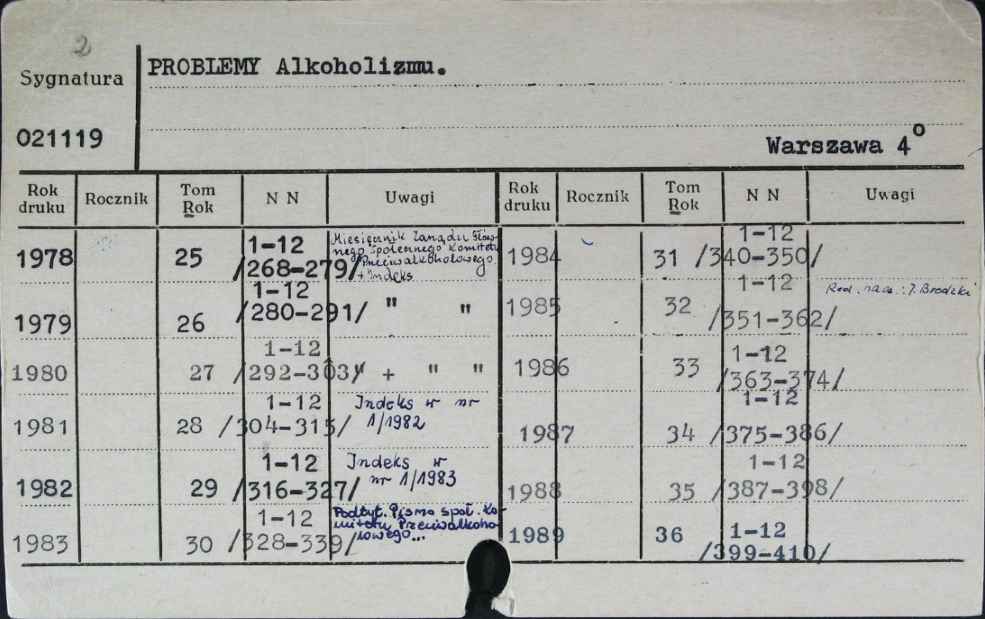 2
Sygnatura
PROBLEMY Alkoholizmu.
021119
Warszawa 4°
Rok druku Rocznik Tom Rok N N Uwagi Rok druku Rocznik Tom Rok N N Uwagi
1978 25 1-12 /268-279/ Miesięcznik Zarządu Głównego Społecznego Komitetu Przeciwalkoholowego + Indeks
1984 31 1-12 /340-350/
1979 26 1-12 /280-291/ " "
1985 32 1-12 /351-362/ Red. nacz.: J. Brodzki
1980 27 1-12 /292-303/ + " "
1986 33 1-12 /363-374/
1981 28 1-12 /304-315/ Indeks w nr 1/1982
1987 34 1-12 /375-386/
1982 29 1-12 /316-327/ Indeks w nr 1/1983
1988 35 1-12 /387-398/
1983 30 1-12 /328-339/ Podtyt. Pismo społ. Komitetu Przeciwalkoholowego...
1989 36 1-12 /399-410/